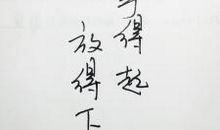 得起
放得下